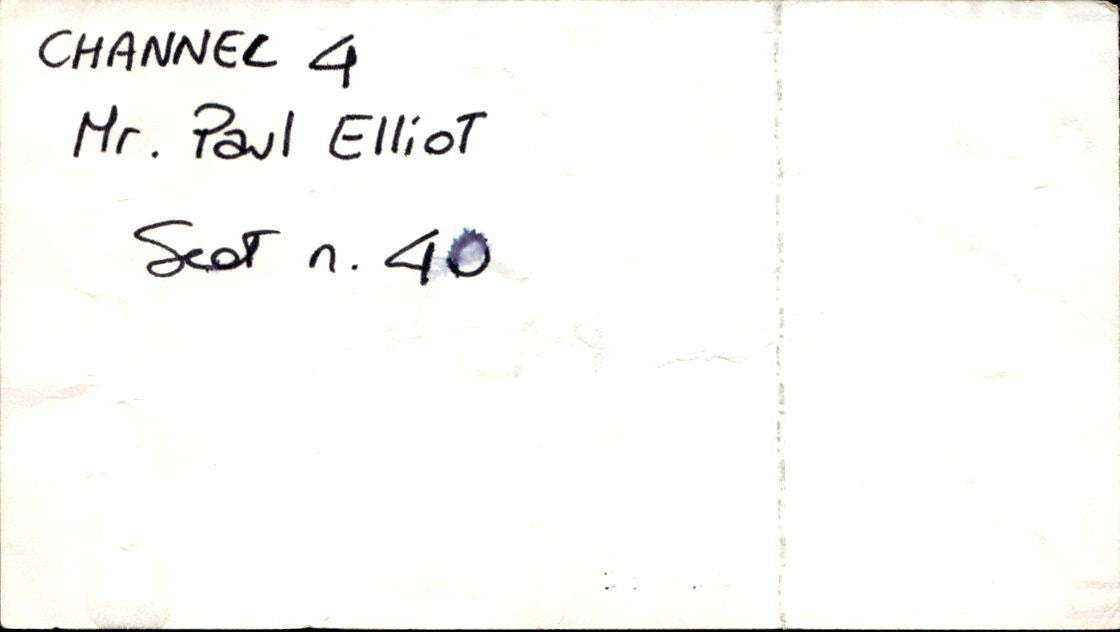 CHANNEL 4
Mr. Paul Elliot
Seat n. 40